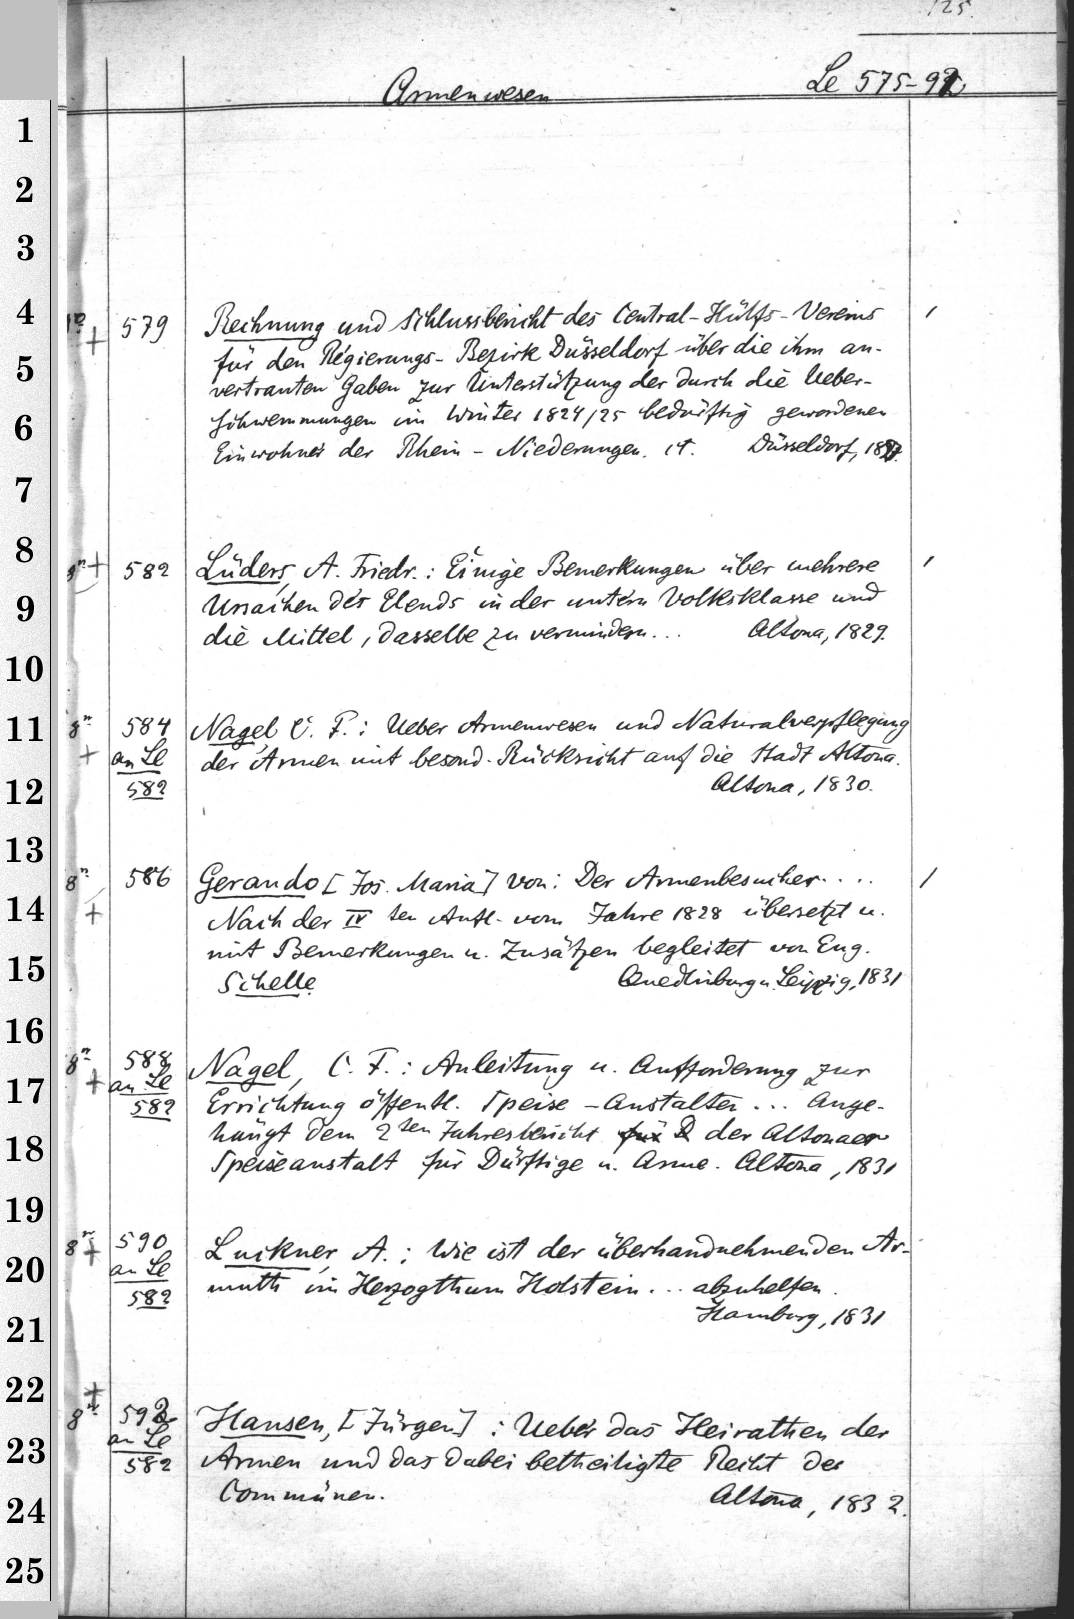 125.
Armenwesen Le 575-92
579 Rechnung und Schlussbericht des Central-Hülfs-Vereins
für den Regierungs-Bezirk Düsseldorf über die ihm an-
vertrauten Gaben zur Unterstützung der durch die Ueber-
schwemmungen im Winter 1824/25 bedürftig gewordenen
Einwohner der Rhein-Niederungen. 4. Düsseldorf,
8° + 582 Lüders, A. Friedr.: Einige Bemerkungen über mehrere
Ursachen des Elends in der untern Volksklasse und
die Mittel, dasselbe zu vermindern... Altona, 1829.
8° 584 Nagel, C. F.: Ueber Armenwesen und Naturalverpflegung
+ an Le der Armen mit besond. Rücksicht auf die Stadt Altona.
582 Altona, 1830.
8° 586 Gerando [Jos. Maria] von: Der Armenbesucher....
+ Nach der IVten Aufl. vom Jahre 1828 übersetzt u.
mit Bemerkungen u. Zusätzen begleitet von Eug.
Schelle Quedlinburg u. Leipzig, 1831
8° 588 Nagel, C. F.: Anleitung u. Aufforderung zur
+ an Le
582 Errichtung öffentl. Speise-Anstalten... Ange-
hängt dem 2ten Jahresbericht der Altonaer
Speiseanstalt für Dürftige u. Arme. Altona, 1831
8° + 590 Luckner, A.: Wie ist der überhandnehmenden Ar-
an Le
582 muth im Herzogthum Holstein... abzuhelfen.
Hamburg, 1831
8° + 592 Hansen, [Jürgen]: Ueber das Heirathen der
an Le
582 Armen und das dabei betheiligte Recht der
Communen. Altona, 1832.
1
2
3
4
5
6
7
8
9
10
11
12
13
14
15
16
17
18
19
20
21
22
23
24
25